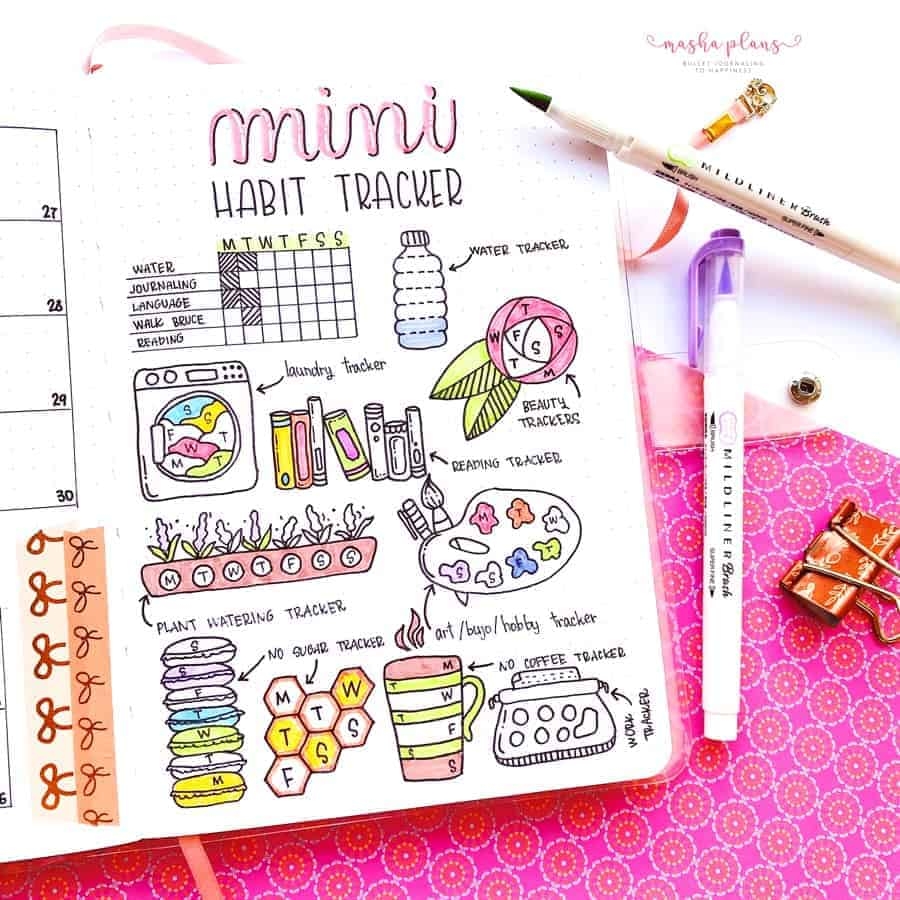 masha plans
BULLET JOURNALING
TO HAPPINESS
mini
HABIT TRACKER
27
28
29
30
M T W T F S S
WATER
JOURNALING
LANGUAGE
WALK BRUCE
READING
WATER TRACKER
T
W F S
T S
M
BEAUTY
TRACKERS
laundry tracker
S
S
F T
W
M T
READING TRACKER
M T W
T
F
S S
M T W T F S S
PLANT WATERING TRACKER
art/bujo/hobby tracker
NO SUGAR TRACKER
S
S
F
T
W
T
M
M T W
T T
S S
F
NO COFFEE TRACKER
M
T
W
T
F
S
S
WORK
TRACKER
MILDLINER Brush
BRUSH
SUPER FINE
MILDLINER Brush
BRUSH
SUPER FINE